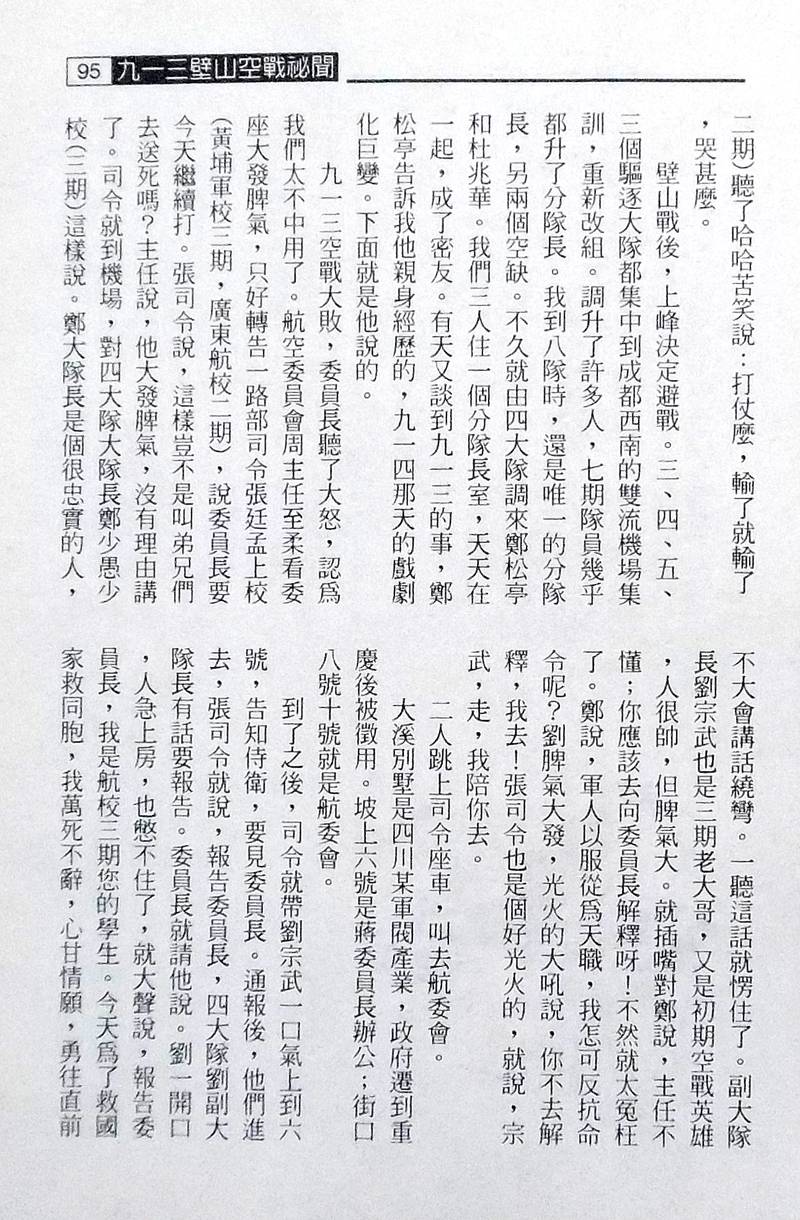 95 九一三壁山空戰祕聞
二期）聽了哈哈苦笑說：打仗麼，輸了就輸了
，哭甚麼。
壁山戰後，上峰決定避戰。三、四、五、
三個驅逐大隊都集中到成都西南的雙流機場集
訓，重新改組。調升了許多人，七期隊員幾乎
都升了分隊長。我到八隊時，還是唯一的分隊
長，另兩個空缺。不久就由四大隊調來鄭松亭
和杜兆華。我們三人住一個分隊長室，天天在
一起，成了密友。有天又談到九一三的事，鄭
松亭告訴我他親身經歷的，九一四那天的戲劇
化巨變。下面就是他說的。
九一三空戰大敗，委員長聽了大怒，認爲
我們太不中用了。航空委員會周主任至柔看委
座大發脾氣，只好轉告一路部司令張廷孟上校
（黃埔軍校三期，廣東航校二期），說委員長要
今天繼續打。張司令說，這樣豈不是叫弟兄們
去送死嗎？主任說，他大發脾氣，沒有理由講
了。司令就到機場，對四大隊大隊長鄭少愚少
校（三期）這樣說。鄭大隊長是個很忠實的人，
不大會講話繞彎。一聽這話就愣住了。副大隊
長劉宗武也是三期老大哥，又是初期空戰英雄
，人很帥，但脾氣大。就插嘴對鄭說，主任不
懂；你應該去向委員長解釋呀！不然就太冤枉
了。鄭說，軍人以服從爲天職，我怎可反抗命
令呢？劉脾氣大發，光火的大吼說，你不去解
釋，我去！張司令也是個好光火的，就說，宗
武，走，我陪你去。
二人跳上司令座車，叫去航委會。
大溪別墅是四川某軍閥產業，政府遷到重
慶後被徵用。坡上六號是蔣委員長辦公；街口
八號十號就是航委會。
到了之後，司令就帶劉宗武一口氣上到六
號，告知侍衛，要見委員長。通報後，他們進
去，張司令就說，報告委員長，四大隊劉副大
隊長有話要報告。委員長就請他說。劉一開口
，人急上房，也憋不住了，就大聲說，報告委
員長，我是航校三期您的學生。今天爲了救國
家救同胞，我萬死不辭，心甘情願，勇往直前